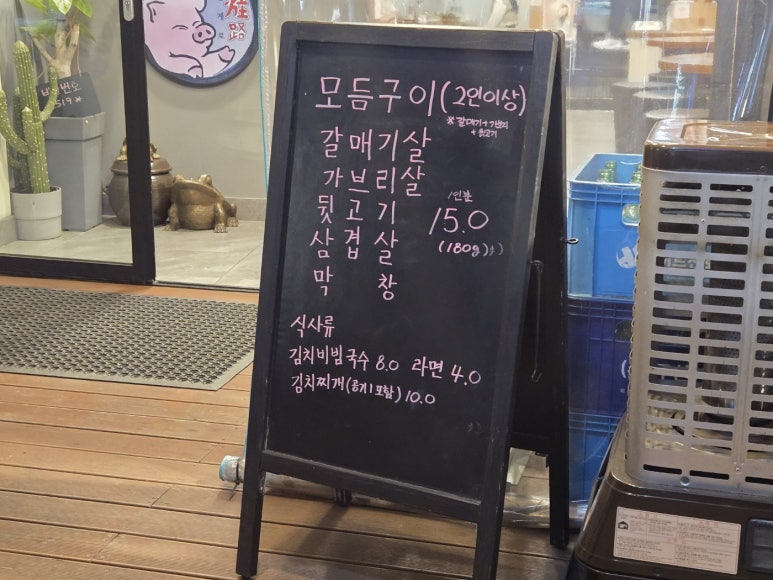 모듬구이(2인이상)
*갈매기+가브리
+뒷고기
갈매기살
가브리살
뒷고기
삼겹살
막창
1인분
15.0
(180g)
식사류
김치비빔국수 8.0 라면 4.0
김치찌개(공기1포함) 10.0